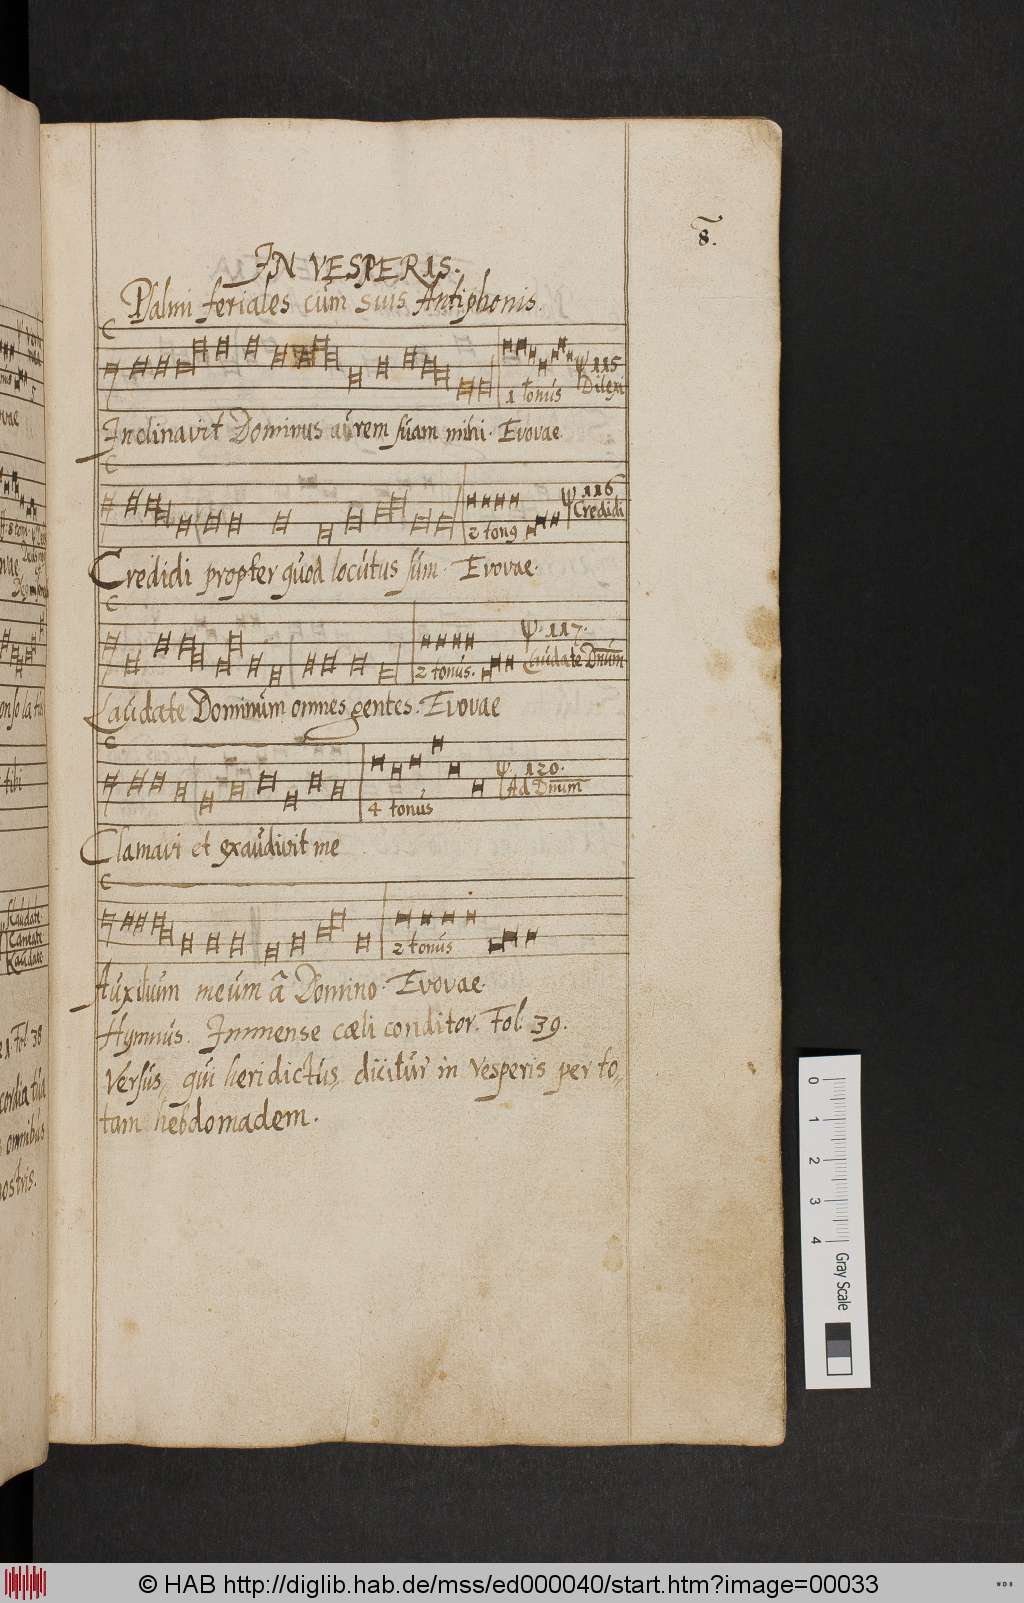 8.
IN VESPERIS.
Psalmi feriales cum suis Antiphonis.
1 tonus
ψ 115
Dilexi
Inclinavit Dominus aurem suam mihi. Evovae.
2 ton9
ψ 116
Credidi
Credidi propter quod locutus sum. Evovae.
2 tonus.
ψ. 117.
Laudate Dnum
Laudate Dominum omnes gentes. Evovae
4 tonus
ψ. 120.
Ad Dnum
Clamavi et exaudivit me
2 tonus
Auxilium meum a Domino. Evovae.
Hymnus. Immense cœli conditor. Fol. 39.
Versus, qui heri dictus, dicitur in Vesperis per to-
tam hebdomadem.
Laudate
Cantate
Laudate
Fol 38
omnibus
nostris.
0 1 2 3 4 Gray Scale
© HAB http://diglib.hab.de/mss/ed000040/start.htm?image=00033